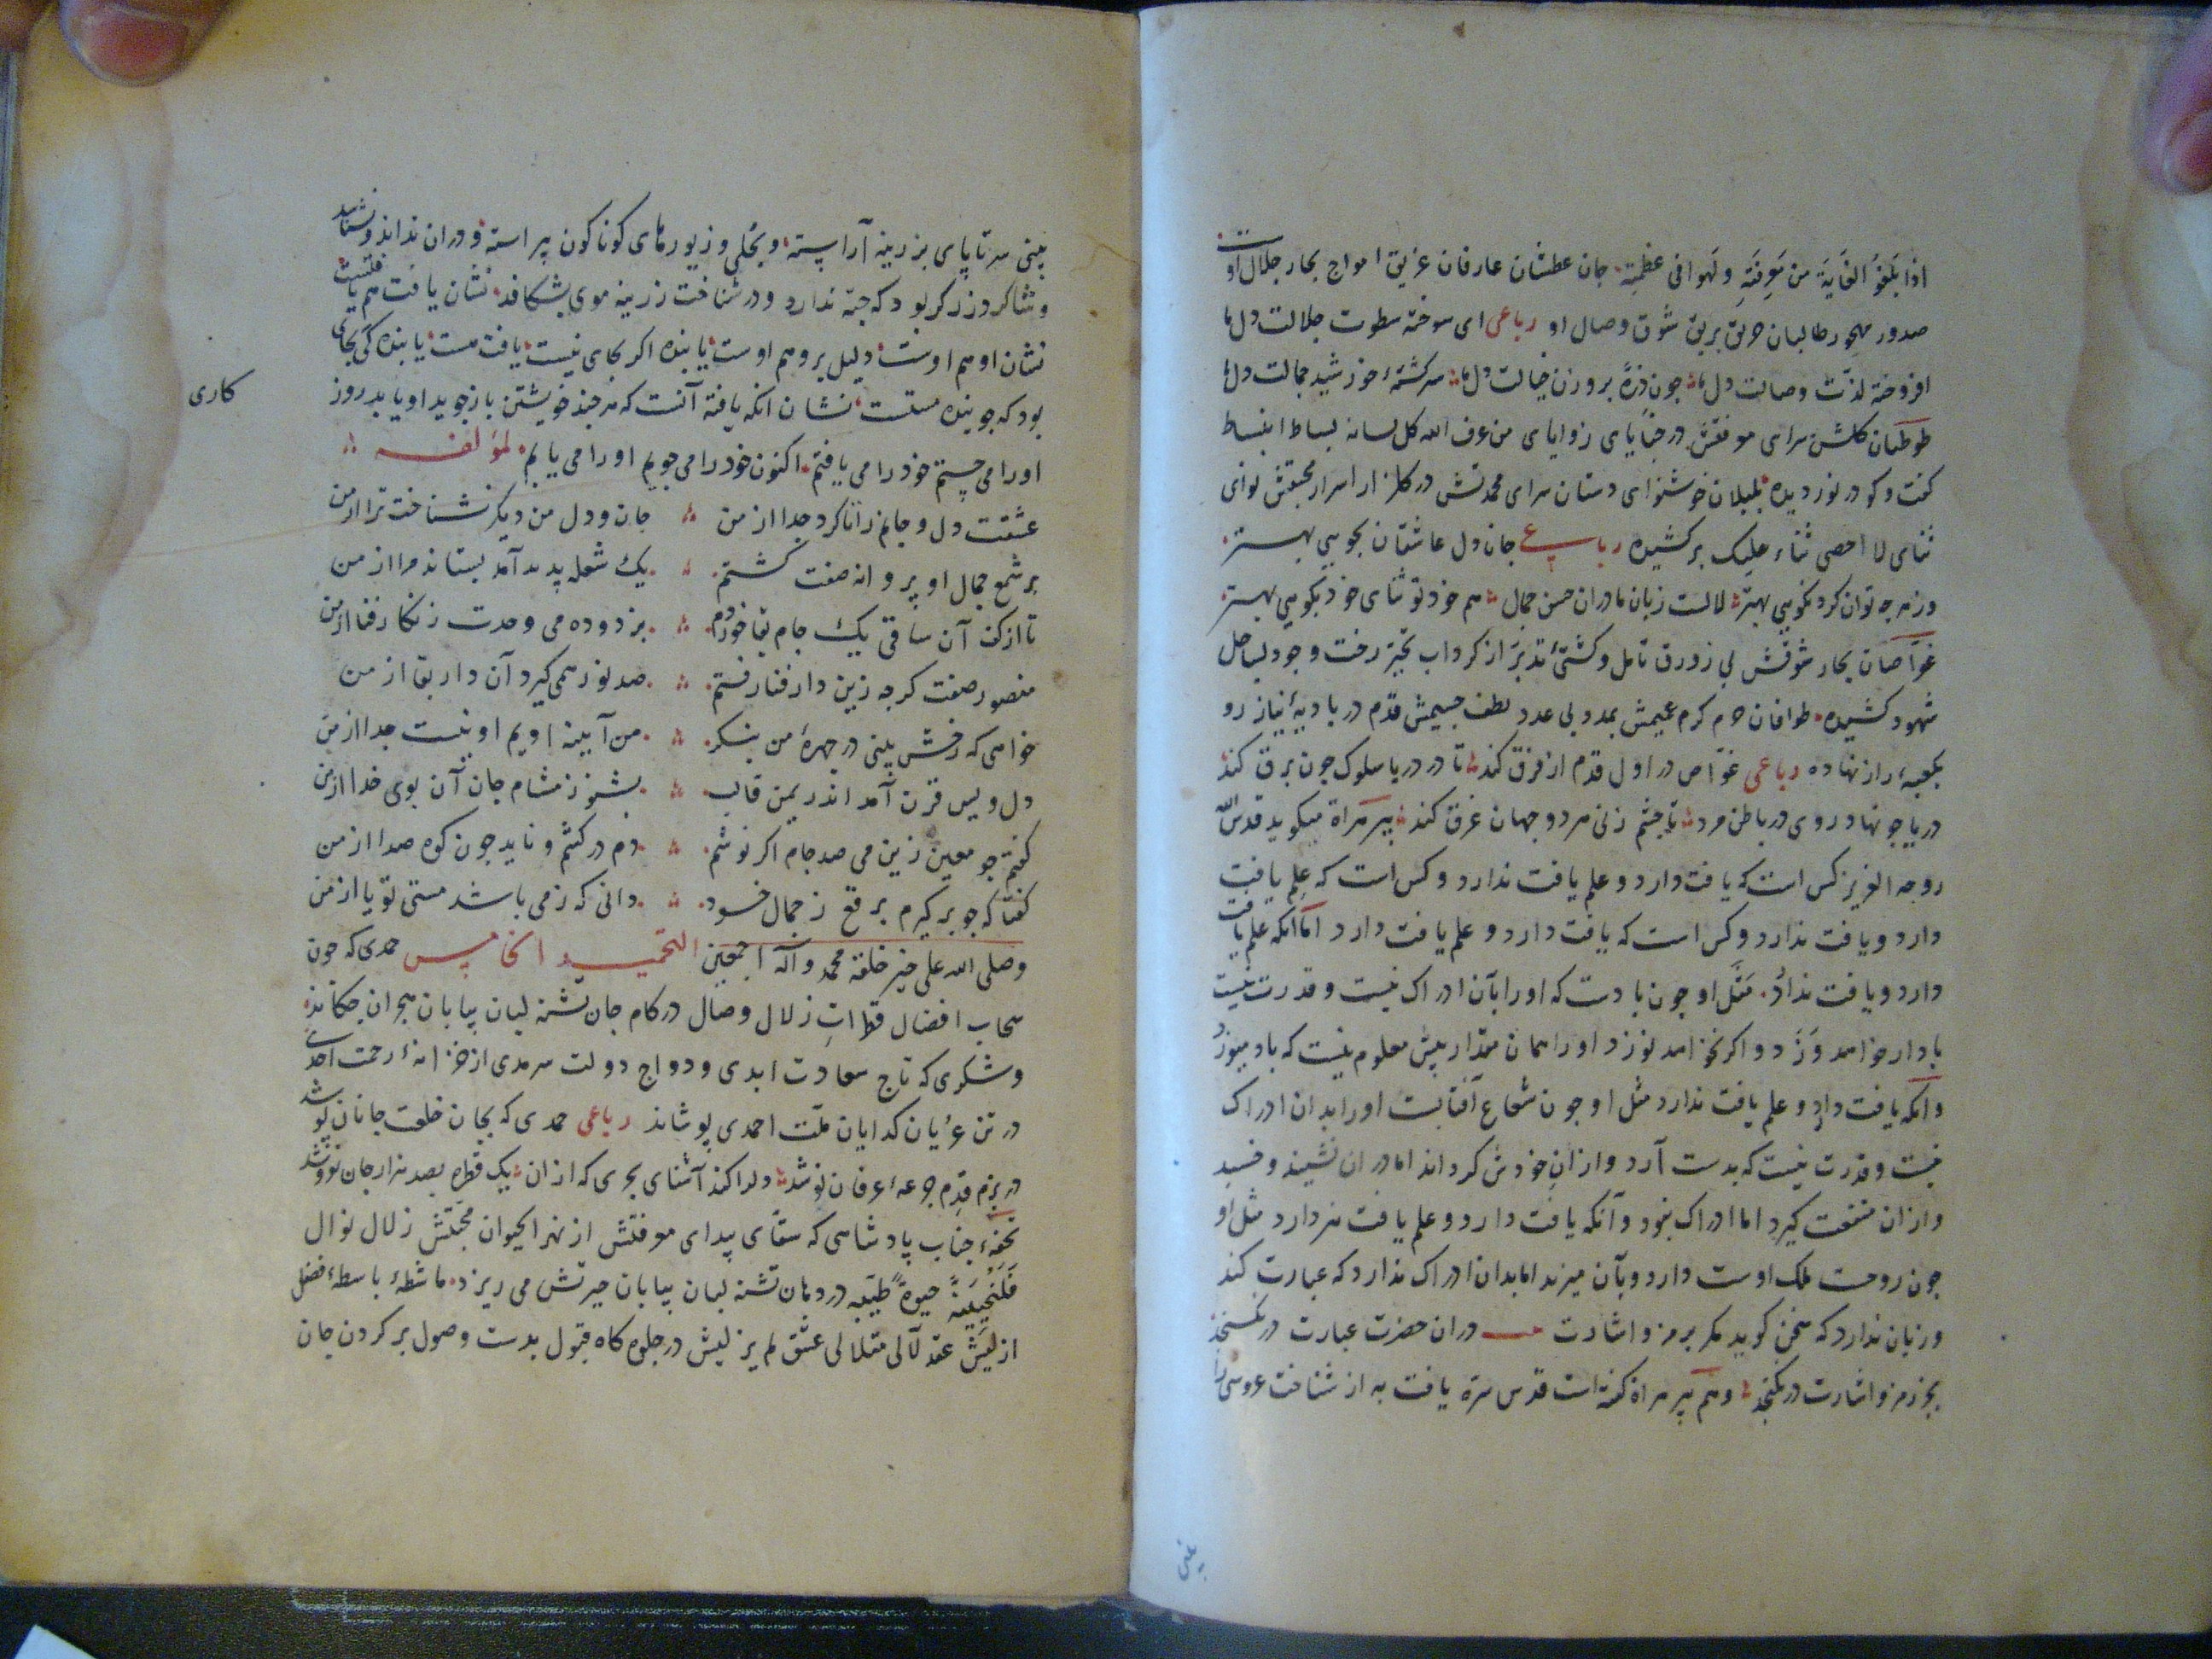 اذا بَلَغوُا الغَایَةَ من مَعرِفَتِهِ ولَهوا فی عظمتِه جان عطشان عارفان غریق امواج بحار جلال او
صدور مهجور طالبان حریق بریق شوق وصال او رباعی ای سوخته سطوت جلالت دل ما
افروخته لذّت وصالت دل ما چون ذرّه بروزن خیالت دل ما سرکشتهٔ خورشید جمالت دل ما
طوطیان کلشن سرای معرفتش در خبایای زوایای من عرف الله کل لسانه بساط انبساط
کفت و کو در نوردیده بلبلان خوشنوای دستان سرای محمدتش در کلزار اسرار محبتش نوای
ثنای لا احصی ثناء علیک برکشیده رباعی جان و دل عاشقان بجویی بهتر
وز هرچه توان کرد نکویی بهتر لالست زبان ما دران حسن جمال هم خود تو ثنای خود بکویی بهتر
غوّاصان بحار شوقش بی زورق تامل و کشتیٔ تدبّر از کرداب تحیّر رخت وجود بساحل
شهود کشیده طوافان حرم کرم عمیمش بمدد بی عدد لطف جسیمش قدم در بادیهٔ نیاز رو
بکعبهٔ راز نهاده رباعی غوّاص در اول قدم از فرق کند تا در دریا سلوک چون برق کند
دریا چو نهاد روی در باطن مرد تا چشم زنی هر دو جهان غرق کند پیر هراة میکوید قدس الله
روحه العزیز کس است که یافت دارد و علم یافت ندارد و کس است که علم یافت
دارد و یافت ندارد و کس است که یافت دارد و علم یافت دارد اما انکه علم یافت
دارد و یافت ندارد مَثَل او چون بادست که او را بآن ادراک نیست و قدرت نیست
باد ار خواهد وَزَد و اکر نخواهد نوزد او را همان مقدار بیش معلوم نیست که باد میوزد
و انکه یافت دارد و علم یافت ندارد مثل او چون شعاع آفتابست او را بدان ادراک
نیست و قدرت نیست که بدست آرد و از ان خودش کرداند اما دران نشیند و خسبد
و ازان منفعت کیرد اما ادراک نبود و آنکه یافت دارد و علم یافت هم دارد مثل او
چون روحست ملک اوست دارد و بآن میزند اما بدان ادراک ندارد که عبارت کند
و زبان ندارد که سخن کوید مکر برمز و اشارت دران حضرت عبارت در نکنجد
بجز رمز و اشارت در نکنجد و هم پیر هراة کفته است قدس سره یافت به از شناخت عروسی را
بینی سر تا پای بزرینه آراسته و بحُلی و زیورهای کوناکون پیراسته و دران نداند و نشناسد
و شاکرد زرکر بود که حبّه ندارد و در شناخت زرینه موی بشکافد نشان یافت هم یافتست
نشان او هم اوست دلیل برو هم اوست یابنده اکر بجای نیست یافت هست یابنده کی بجای
کاری
بود که جوینده مستست نشان انکه یافته آنست که هر چند خویشتن باز جوید او یابد روز
او را می جستم خود را می یافتم اکنون خود را می جویم او را می یابم لمؤلفه
عشقت دل و جانم را تا کرد جدا از من جان و دل من دیکر نشناخت ترا از من
بر شمع جمال او پروانه صفت کشتم یک شعله پدید آمد بستاند مرا از من
تا از کف آن ساقی یک جام بقا خوردم بزدوده می وحدت زنکار فنا از من
منصور صفت کرچه زین دار فنا رفتم صد نور همی کیرد آن دار بقا از من
خواهی که رخش بینی در چهرهٔ من بنکر من آیینهٔ اویم او نیست جدا از من
دل ویس قرن آمد اندر یمن قالب بشنو ز مشام جان آن بوی خدا از من
کفتم چو معین زین می صد جام اکر نوشم دم درکشم و ناید چون کوه صدا از من
کفتا که چو برکیرم برقع ز جمال خود دانی که ز می باشد مستی تو یا از من
وصلی الله علی خیر خلقه محمد وآله اجمعین التحمید الخامس حمدی که چون
سحاب افضال قطراتِ زلال وصال در کام جان تشنه لبان بیابان هجران چکاند
و شکری که تاج سعادت ابدی و دواج دولت سرمدی از خزانهٔ رحمت احدی
در تن عریان کدایان ملّت احمدی پوشاند رباعی حمدی که بجان خلعت جانان پوشد
در بزم قِدم جرعهٔ عرفان نوشد دلدا کند آشنای بحری که از ان یک قطره بصد هزار جان نفروشد
تحفهٔ جناب پادشاهی که سقّای بیدای معرفتش از نهر الحیوان محبّتش زلال نوال
فَلَنُحْیِیَنَّهُ حیوةً طیّبه در دهان تشنه لبان بیابان حیرتش می ریزد ماشطهٔ باسطهٔ فضل
ازلیش عقد لآلی متلالی عشق لم یزلیش در جلوه کاه قبول بدست وصول بر کردن جان